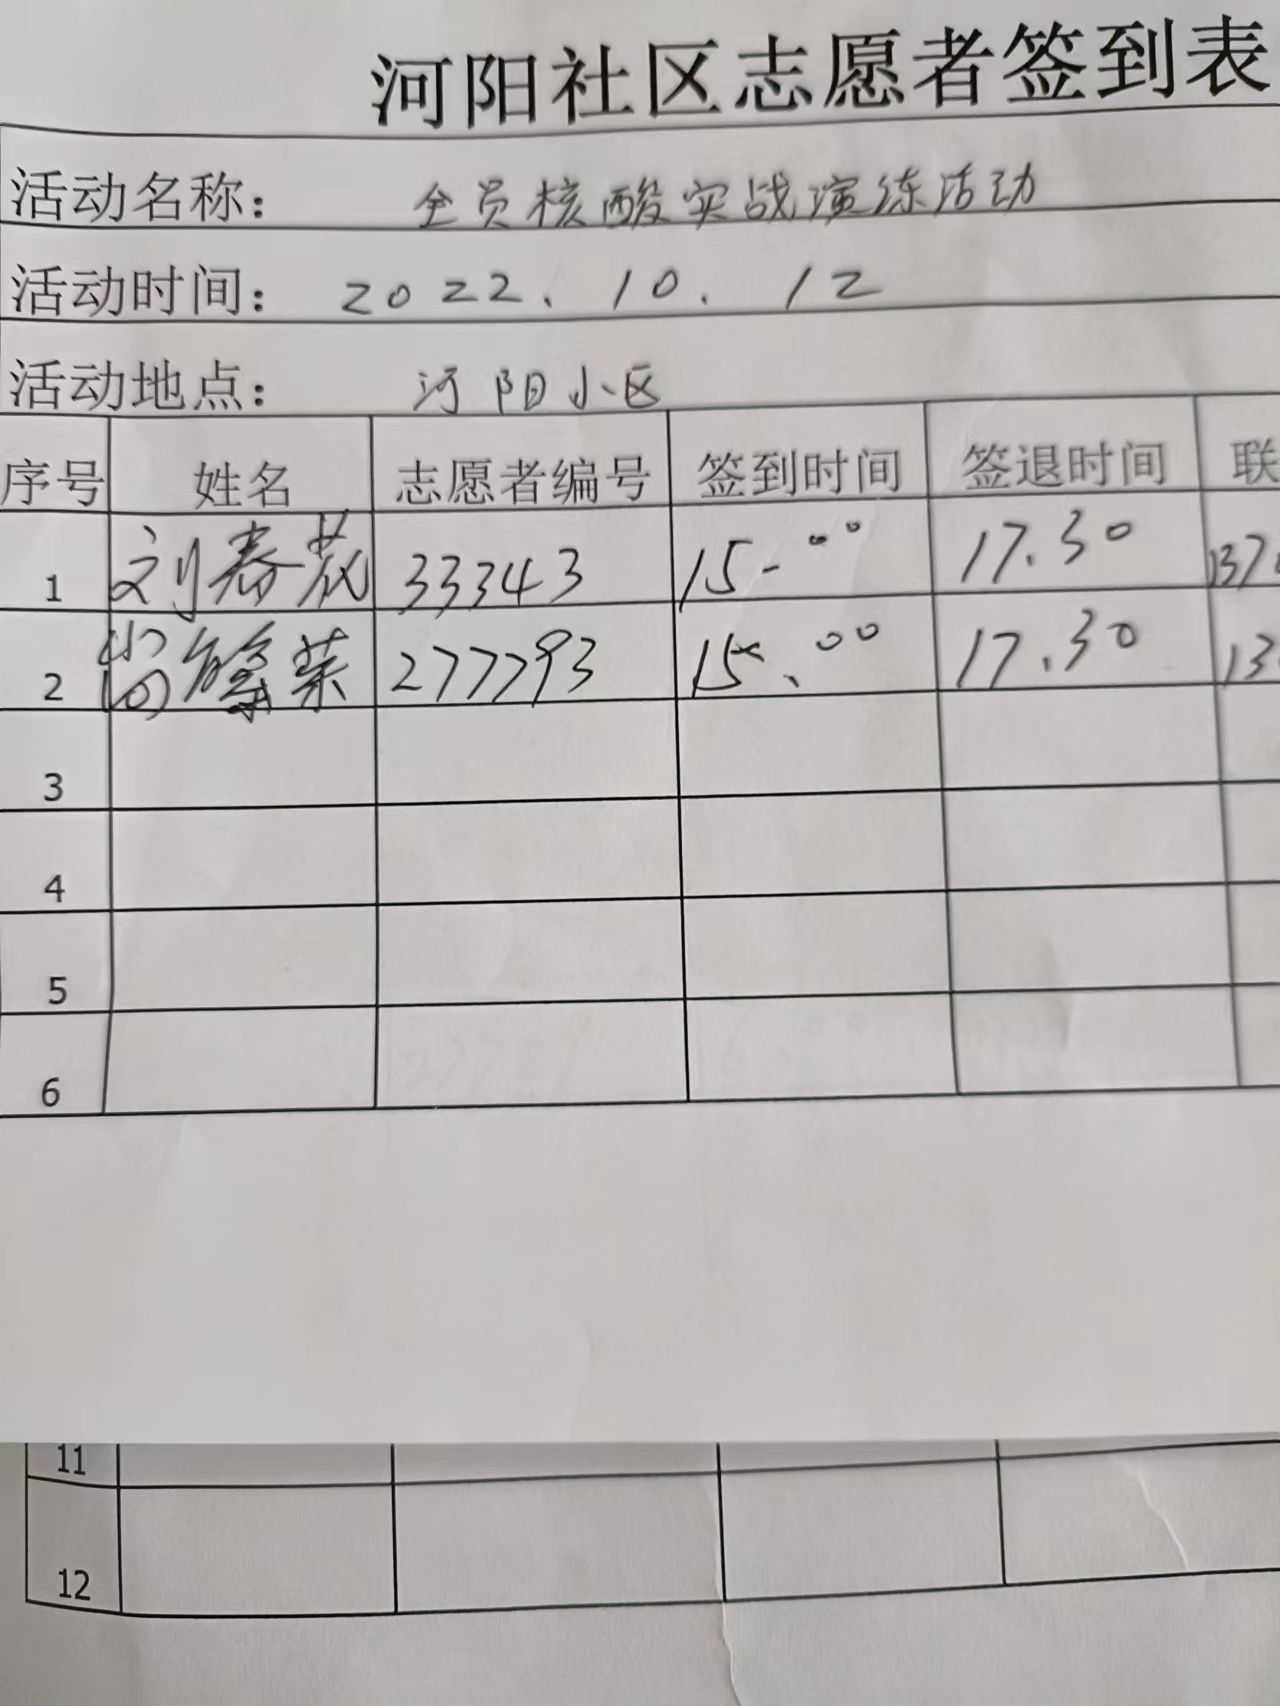 河阳社区志愿者签到表
活动名称： 全员核酸实战演练活动
活动时间： 2022.10.12
活动地点： 河阳小区
序号 姓名 志愿者编号 签到时间 签退时间 联
1 刘春花 33343 15-00 17.30 137
2 277793 15.00 17.30 13
3
4
5
6
11
12